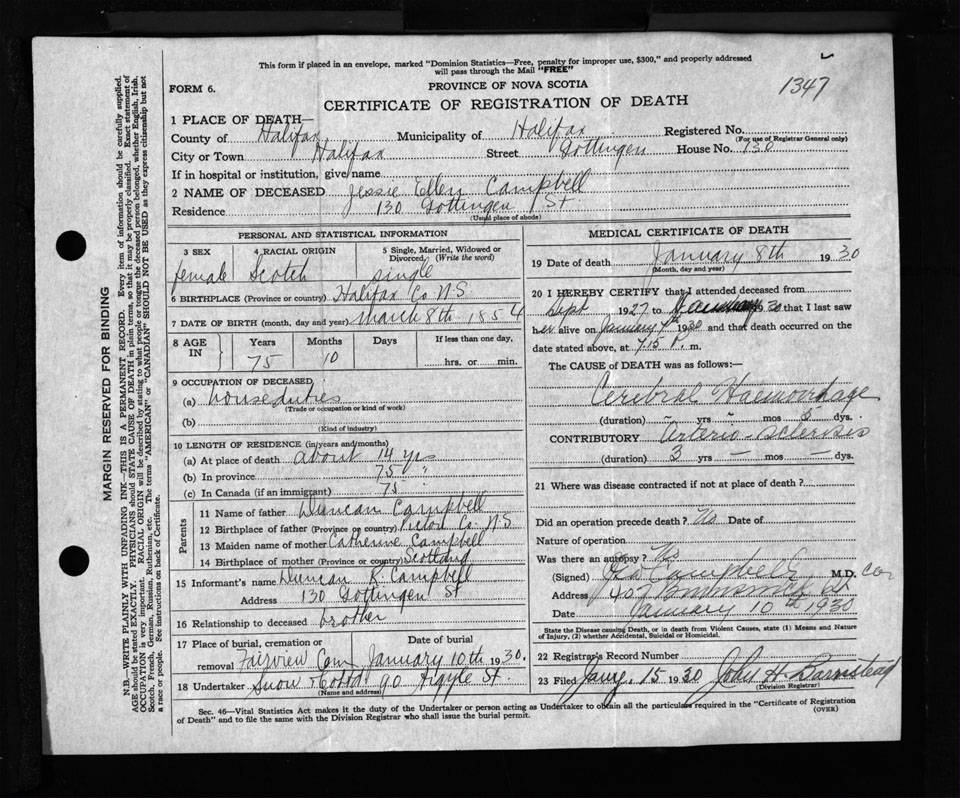 This form if placed in an envelope, marked "Dominion Statistics—Free, penalty for improper use, $300," and properly addressed
will pass through the Mail "FREE"
1347
FORM 6.
PROVINCE OF NOVA SCOTIA
CERTIFICATE OF REGISTRATION OF DEATH
1 PLACE OF DEATH—
County of Halifax Municipality of Halifax Registered No.
(For use of Registrar General only)
City or Town Halifax Street Gottingen House No. 130
If in hospital or institution, give name
2 NAME OF DECEASED Jessie Ellen Campbell
Residence 130 Gottingen St
(Usual place of abode)
PERSONAL AND STATISTICAL INFORMATION
3 SEX 4 RACIAL ORIGIN 5 Single, Married, Widowed or Divorced, (Write the word)
female Scotch single
6 BIRTHPLACE (Province or country) Halifax Co N.S.
7 DATE OF BIRTH (month, day and year) March 8th 1854
8 AGE IN Years Months Days If less than one day,
75 10 hrs. or min.
9 OCCUPATION OF DECEASED
(a) houseduties
(Trade or occupation or kind of work)
(b)
(Kind of industry)
10 LENGTH OF RESIDENCE (in years and months)
(a) At place of death about 14 yrs
(b) In province 75 "
(c) In Canada (if an immigrant) 75
Parents
11 Name of father Duncan Campbell
12 Birthplace of father (Province or country) Pictou Co. N.S.
13 Maiden name of mother Catherine Campbell
14 Birthplace of mother (Province or country) Scotland
15 Informant's name Duncan R. Campbell
Address 130 Gottingen St
16 Relationship to deceased brother
17 Place of burial, cremation or removal Fairview Cem Date of burial January 10th 1930.
18 Undertaker Snow & Co Ltd 90 Argyle St.
(Name and address)
MEDICAL CERTIFICATE OF DEATH
19 Date of death January 8th 1930
(Month, day and year)
20 I HEREBY CERTIFY that I attended deceased from
Sept 1927 to January 1930 that I last saw
her alive on January 7th 1930 and that death occurred on the
date stated above, at 7.15 P. m.
The CAUSE of DEATH was as follows:
Cerebral Haemorrhage
(duration) – yrs – mos 5 dys.
CONTRIBUTORY Arterio-sclerosis
(duration) 3 yrs – mos – dys.
21 Where was disease contracted if not at place of death?
Did an operation precede death? No Date of
Nature of operation
Was there an autopsy? No
(Signed) Campbell M.D.
Address 407 Brunswick St
Date January 10th 1930
State the Disease causing Death, or in death from Violent Causes, state (1) Means and Nature
of Injury, (2) whether Accidental, Suicidal or Homicidal.
22 Registrar's Record Number
23 Filed Jany. 15 1930 John H. Barnstead
(Division Registrar)
Sec. 46—Vital Statistics Act makes it the duty of the Undertaker or person acting as Undertaker to obtain all the particulars required in the "Certificate of Registration
of Death" and to file the same with the Division Registrar who shall issue the burial permit.
(OVER)
MARGIN RESERVED FOR BINDING
N.B.—WRITE PLAINLY WITH UNFADING INK—THIS IS A PERMANENT RECORD. Every item of information should be carefully supplied.
AGE should be stated EXACTLY. PHYSICIANS should STATE CAUSE OF DEATH in plain terms, so that it may be properly classified. Exact statement of
OCCUPATION is very important. RACIAL ORIGIN will be described by stating to what people or tongue the deceased person belonged, whether English, Irish,
Scotch, French, German, Russian, Ruthenian, etc. The terms "AMERICAN" or "CANADIAN" SHOULD NOT BE USED as they express citizenship but not
a race or people. See instructions on back of Certificate.